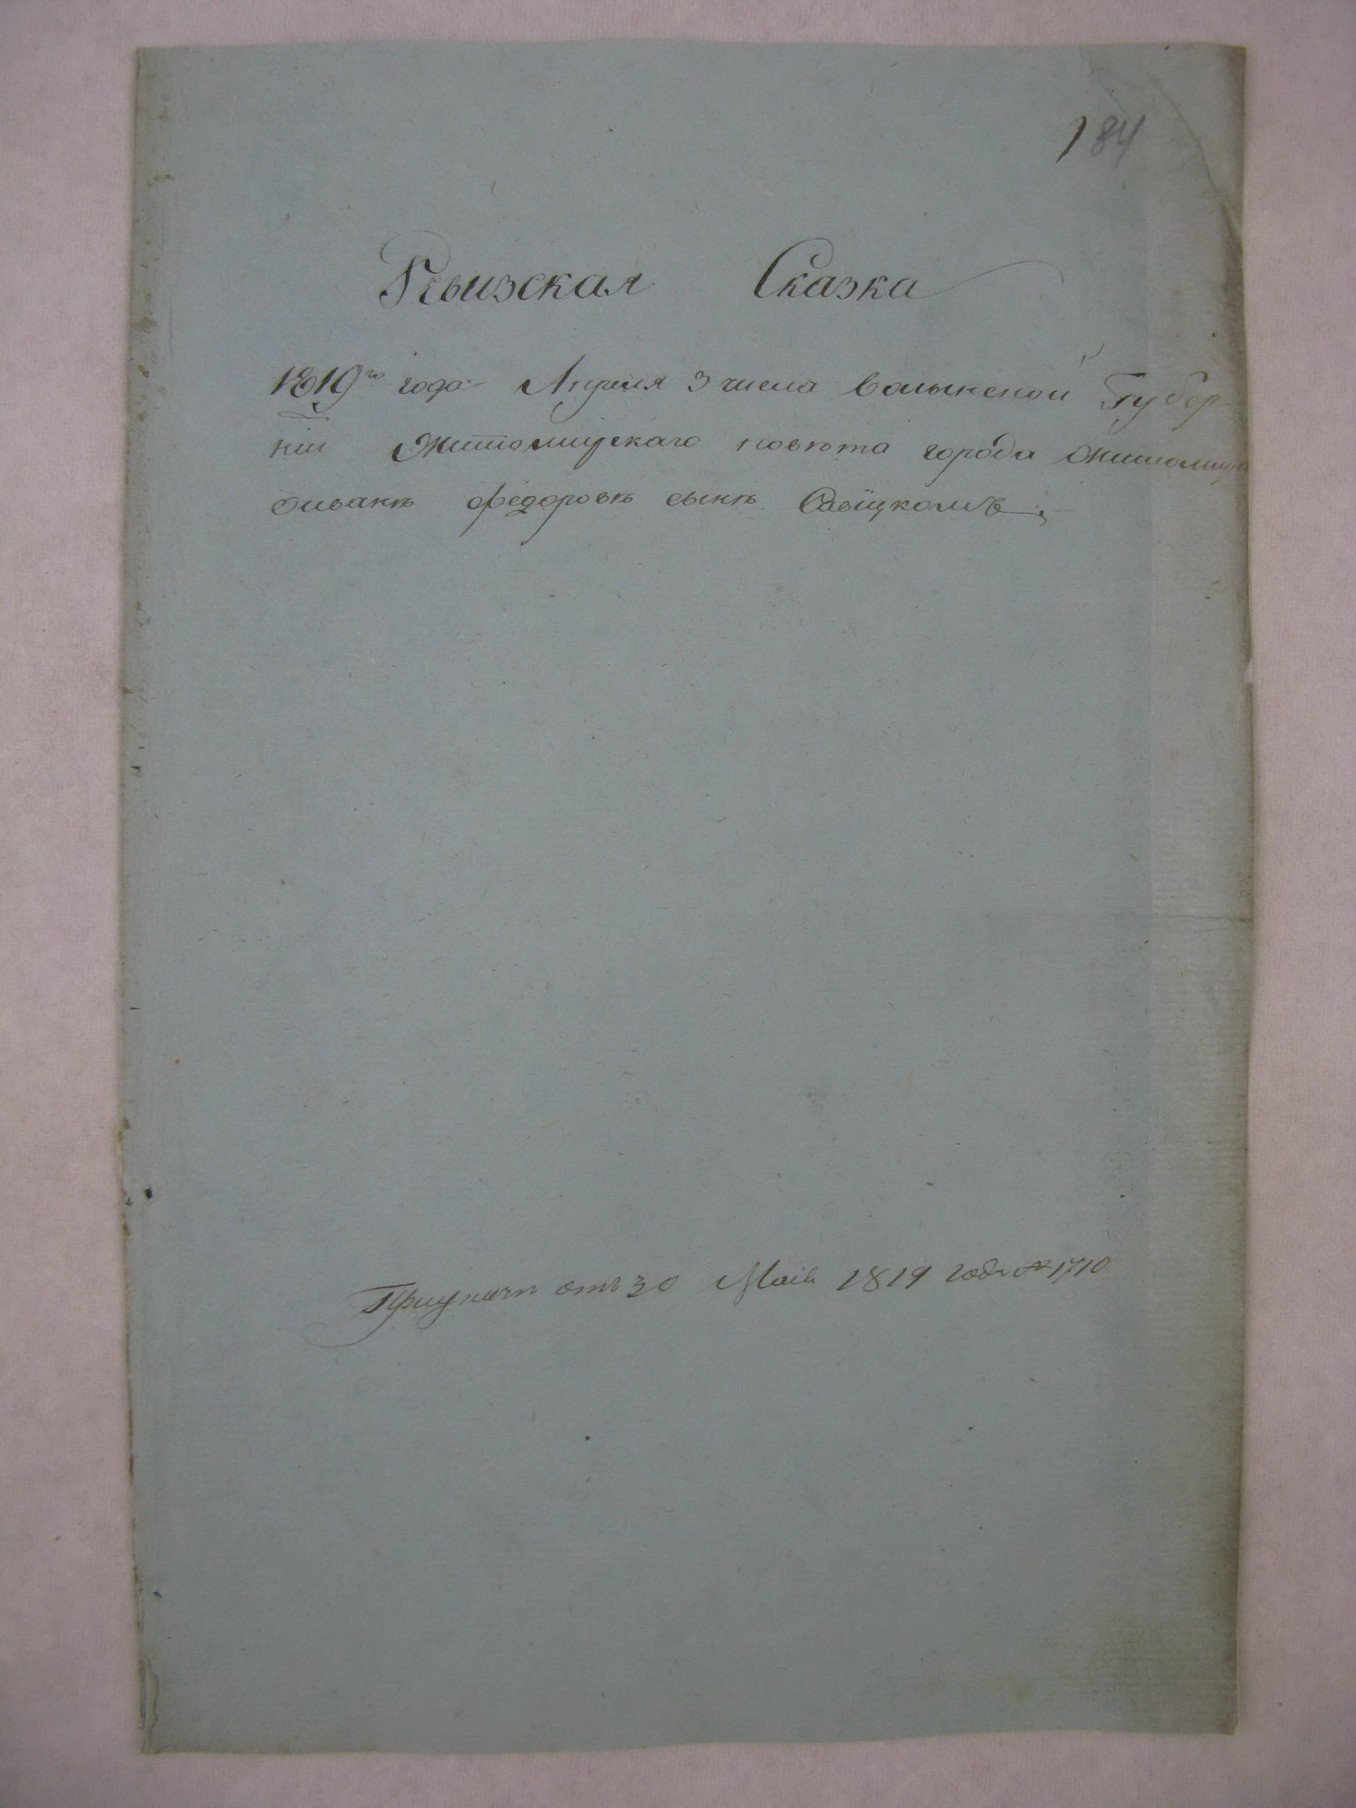 184
Ревизская Сказка
1819го года Апреля 3 числа Волынской Губер
нии Житомирского повета города Житомира
Ѳедоровѣ сынѣ Савицкомъ
отъ 30 Маія 1819 года № 1710